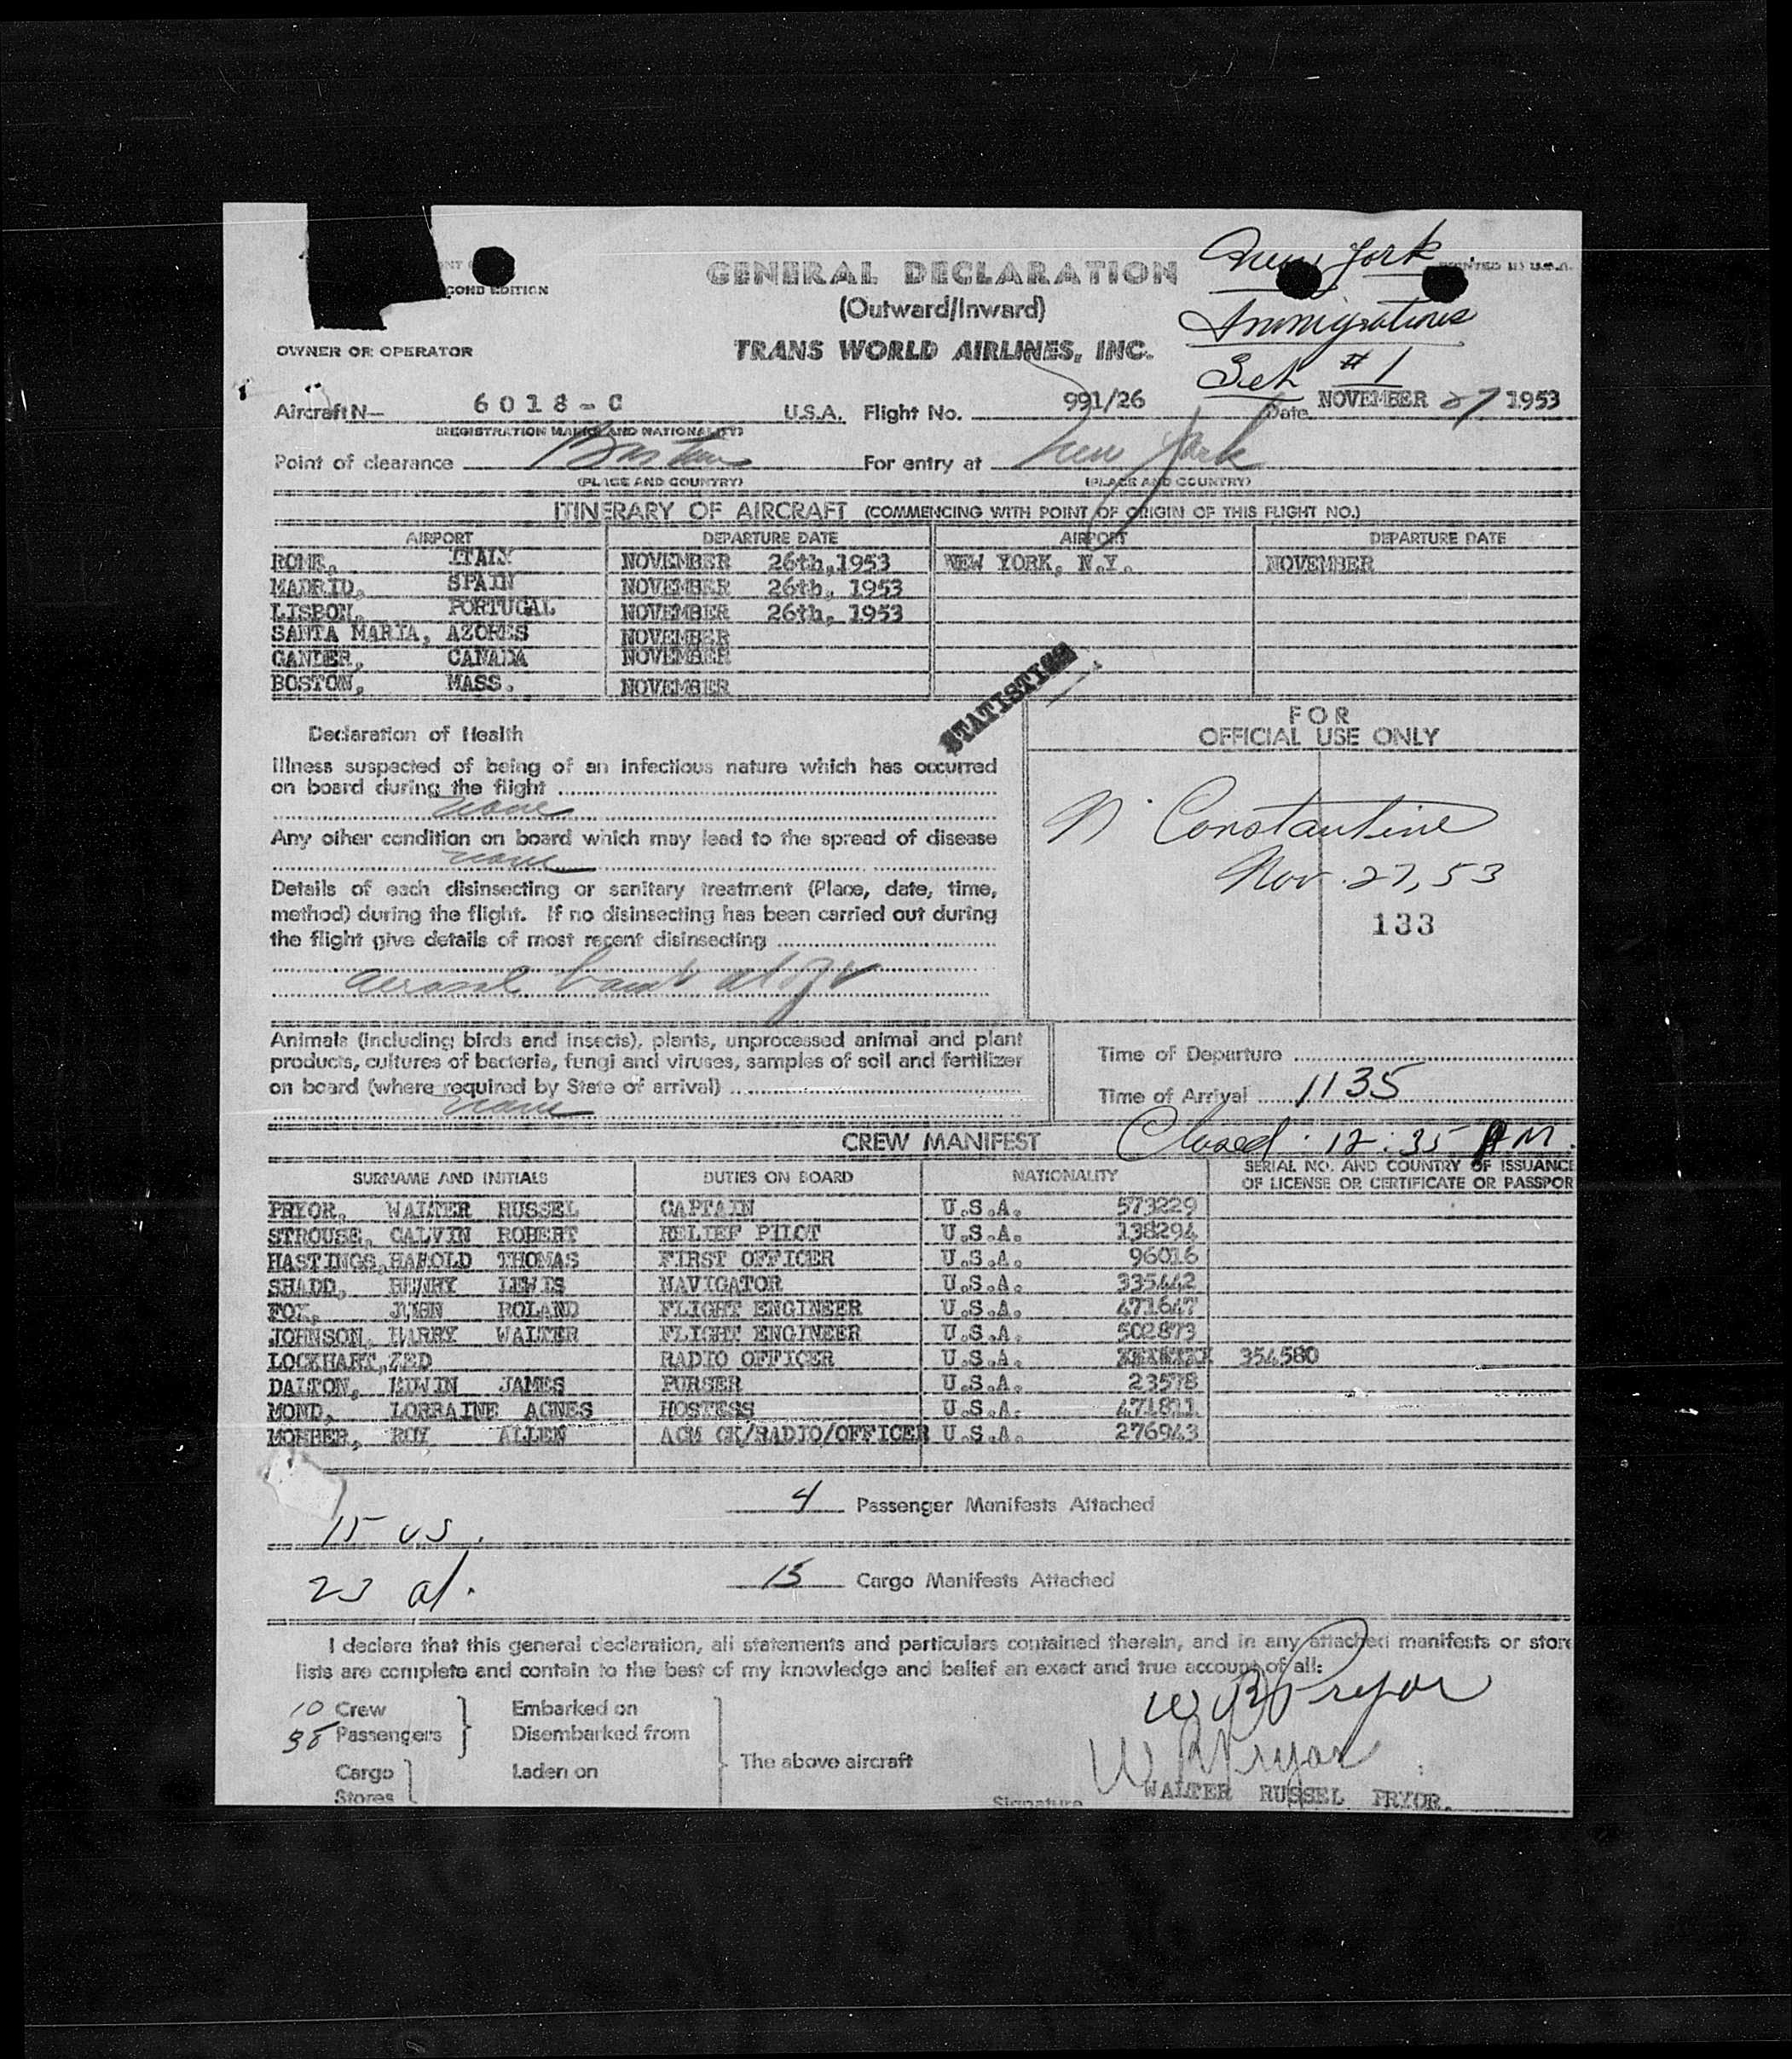 New York
COND EDITION
GENERAL DECLARATION
(Outward/Inward)
Immigrations
OWNER OR OPERATOR
TRANS WORLD AIRLINES, INC.
Set #1
Aircraft N- 6018-C U.S.A. Flight No. 991/26 Date NOVEMBER 27 1953
(REGISTRATION MARKS AND NATIONALITY)
Point of clearance Boston For entry at New York
(PLACE AND COUNTRY) (PLACE AND COUNTRY)
ITINERARY OF AIRCRAFT (COMMENCING WITH POINT OF ORIGIN OF THIS FLIGHT NO.)
AIRPORT DEPARTURE DATE AIRPORT DEPARTURE DATE
ROME, ITALY NOVEMBER 26th,1953 NEW YORK, N.Y. NOVEMBER
MADRID, SPAIN NOVEMBER 26th, 1953
LISBON, PORTUGAL NOVEMBER 26th, 1953
SANTA MARIA, AZORES NOVEMBER
GANDER, CANADA NOVEMBER
BOSTON, MASS. NOVEMBER
STATISTICS
FOR
OFFICIAL USE ONLY
Declaration of Health
Illness suspected of being of an infectious nature which has occurred
on board during the flight
none
Any other condition on board which may lead to the spread of disease
none
Details of each disinsecting or sanitary treatment (Place, date, time,
method) during the flight. If no disinsecting has been carried out during
the flight give details of most recent disinsecting
aerosol bomb
N. Constantine
Nov. 27, 53
133
Animals (including birds and insects), plants, unprocessed animal and plant
products, cultures of bacteria, fungi and viruses, samples of soil and fertilizer
on board (where required by State of arrival)
none
Time of Departure
Time of Arrival 1135
Closed: 12:35 PM.
CREW MANIFEST
SURNAME AND INITIALS DUTIES ON BOARD NATIONALITY SERIAL NO. AND COUNTRY OF ISSUANCE
OF LICENSE OR CERTIFICATE OR PASSPOR
PRYOR, WALTER RUSSEL CAPTAIN U.S.A. 573229
STROUSE, CALVIN ROBERT RELIEF PILOT U.S.A. 138294
HASTINGS,HAROLD THOMAS FIRST OFFICER U.S.A. 96016
SHADD, HENRY LEWIS NAVIGATOR U.S.A. 335442
FOX, JOHN ROLAND FLIGHT ENGINEER U.S.A. 471647
JOHNSON, HARRY WALTER FLIGHT ENGINEER U.S.A. 502873
LOCKHART,ZED RADIO OFFICER U.S.A. 354580
DALTON, EDWIN JAMES PURSER U.S.A. 23578
MOND, LORRAINE AGNES HOSTESS U.S.A. 471811
ROY ALLEN ACM CK/RADIO/OFFICER U.S.A. 276943
4 Passenger Manifests Attached
15 US.
15 Cargo Manifests Attached
23 al.
I declare that this general declaration, all statements and particulars contained therein, and in any attached manifests or store
lists are complete and contain to the best of my knowledge and belief an exact and true account of all:
10 Crew Embarked on
38 Passengers Disembarked from
Cargo Laden on
Stores
The above aircraft
W R Pryor
W R Pryor
Signature WALTER RUSSEL PRYOR.